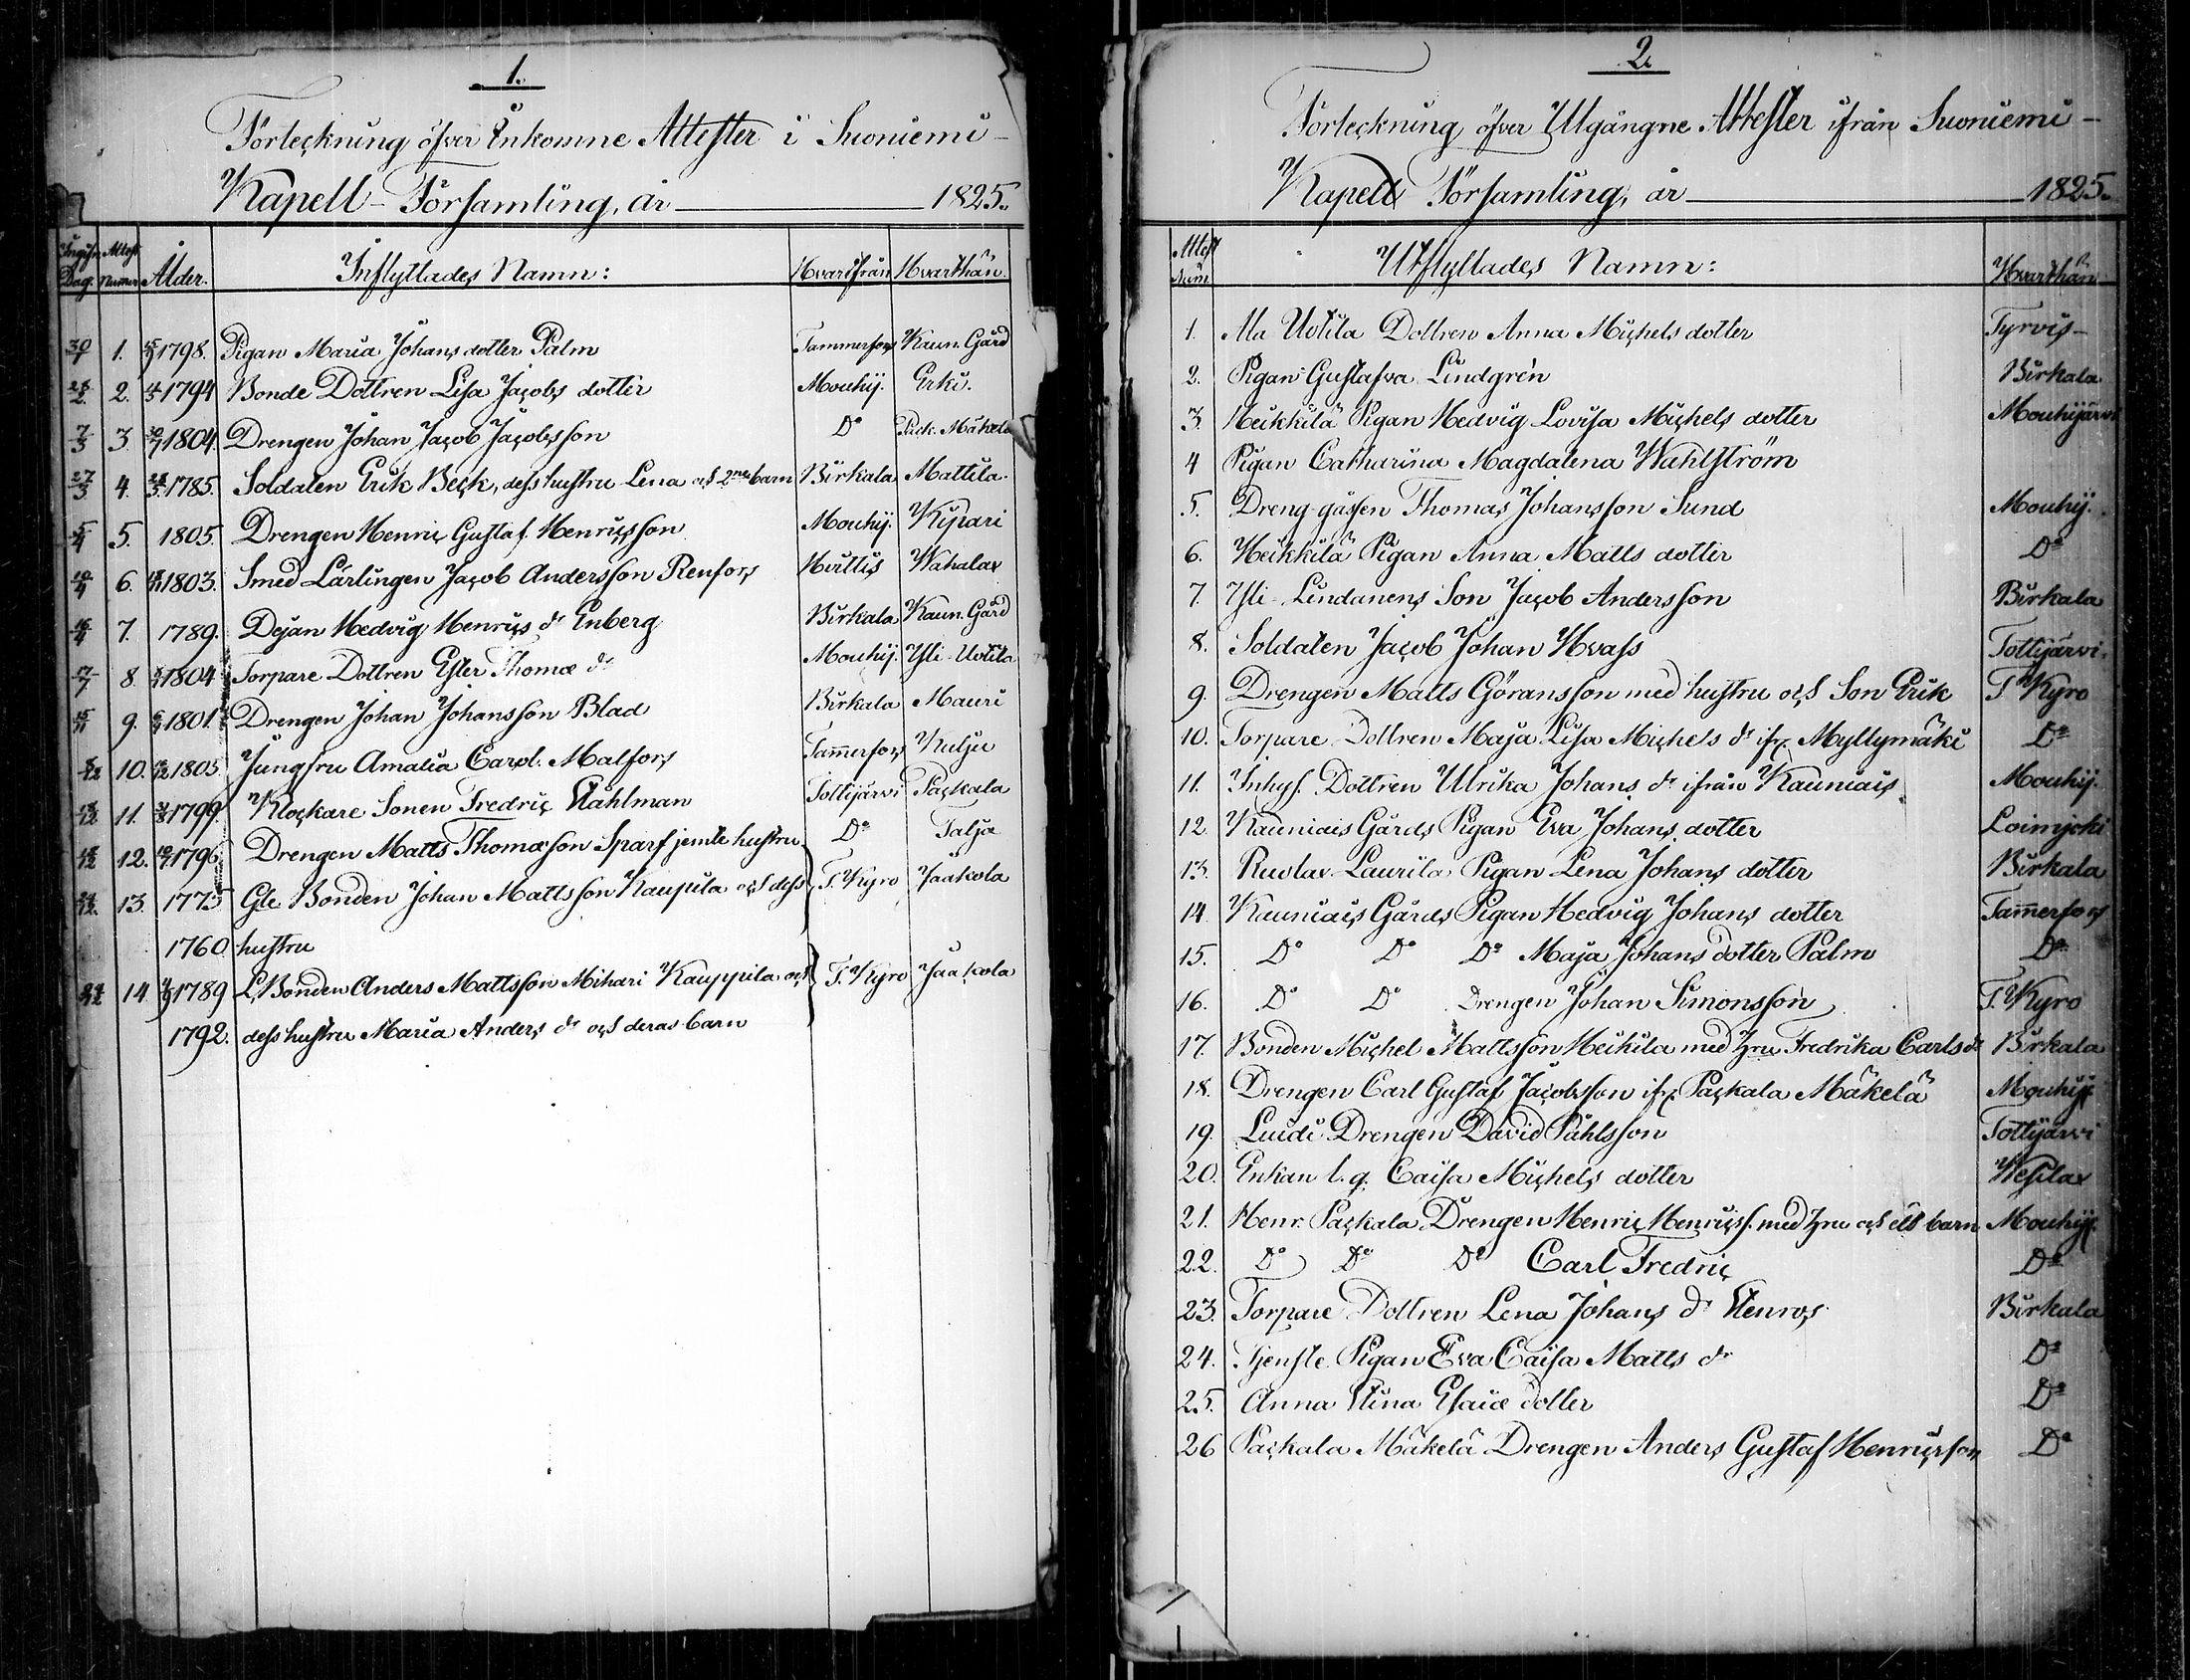 1.
Förteckning öfver Inkomne Attester i Suoniemi
Kapell-Församling, år 1825.
Attest Numer Ålder. Inflyttades Namn: Hvarifrån Hvarthän.
30/1 1. 1798. Pigan Maria Johans dotter Palm Tammerfors Kaun. Gård
2. 1794 Bonde Dottren Lisa Jacobs dotter Mouhij. Erki.
7/3 3. 1804. Drengen Johan Jacob Jacobsson Do Pack. Mäkelä
27/3 4. 1785. Soldaten Erik Beck, dess hustru Lena och 2ne barn Birkala Mattila.
5/4 5. 1805. Drengen Henric Gustaf Henricsson Mouhij. Kipari
10/4 6. 1803. Smed Lärlingen Jacob Andersson Renfors Huittis Wahalax
7. 1789. Dejan Hedvig Henrics dr Enberg Birkala Kaun. Gård
8. 1804 Torpare Dottren Ester Thomæ dr Mouhij. Yli-Uotila
15/11 9. 1801. Drengen Johan Johansson Blad Birkala Mauri
10. 1805 Jungfru Amalia Carol. Malfors Tam̄erfors Kulju
11. 1799 Klockare Sonen Fredric Ståhlman Tottijärvi Packala
12. 1796 Drengen Matts Thomæson Sparf jemte hustru Do Talja
13. 1775 Gle Bonden Johan Mattsson Kaupila och dess T. Kyro Jaakola
1760 hustru
14 1789 L. Bonden Anders Mattsson Mihari Kauppila och T. Kyro Jaakola
1792. dess hustru Maria Anders dr och deras barn
2.
Förteckning öfver Utgångne Attester ifrån Suoniemi
Kapell Församling, år 1825.
Attest Num. Utflyttades Namn: Hvarthän
1. Ala Uotila Dottren Anna Michels dotter Tyrvis
2. Pigan Gustafva Lindgrén Birkala
3. Heikkilä Pigan Hedvig Lovisa Michels dotter Mouhijärvi
4 Pigan Catharina Magdalena Wahlström
5. Dreng gåssen Thomas Johansson Sund Mouhij.
6. Heikkilä Pigan Anna Matts dotter Do
7. Yli-Lindanens Son Jacob Andersson Birkala
8. Soldaten Jacob Johan Hvass Tottijärvi.
9. Drengen Matts Göransson med hustru och Son Erik T. Kyro
10. Torpare Dottren Maja Lisa Michels dr ifr. Myllymäki Do
11. Inhys. Dottren Ulrika Johans dr ifrån Kauniais Mouhij.
12. Kauniais Gårds Pigan Eva Johans dotter Loimjoki
13. Ruolax Laurila Pigan Lena Johans dotter Birkala
14. Kauniais Gårds Pigan Hedvig Johans dotter Tam̄erfors
15. Do Do Do Maja Johans dotter Palm Do
16. Do Do Drengen Johan Simonsson T. Kyro
17. Bonden Michel Mattsson Heikila med hru Fredrika Carls dr Birkala
18. Drengen Carl Gustaf Jacobsson ifr. Packala Mäkelä Mouhij.
19. Luidi Drengen David Påhlsson Tottijärvi
20. Enkan t. q. Caisa Michels dotter Wesilax
21. Henr. Packala Drengen Henric Henricss. med hru och ett barn Mouhij.
22. Do Do Do Carl Fredric Do
23. Torpare Dottren Lena Johans dr Stenros Birkala
24. Tjenste Pigan Eva Caisa Matts dr Do
25. Anna Stina Esaiæ dotter Do
26 Packala Mäkelä Drengen Anders Gustaf Henricsson Do